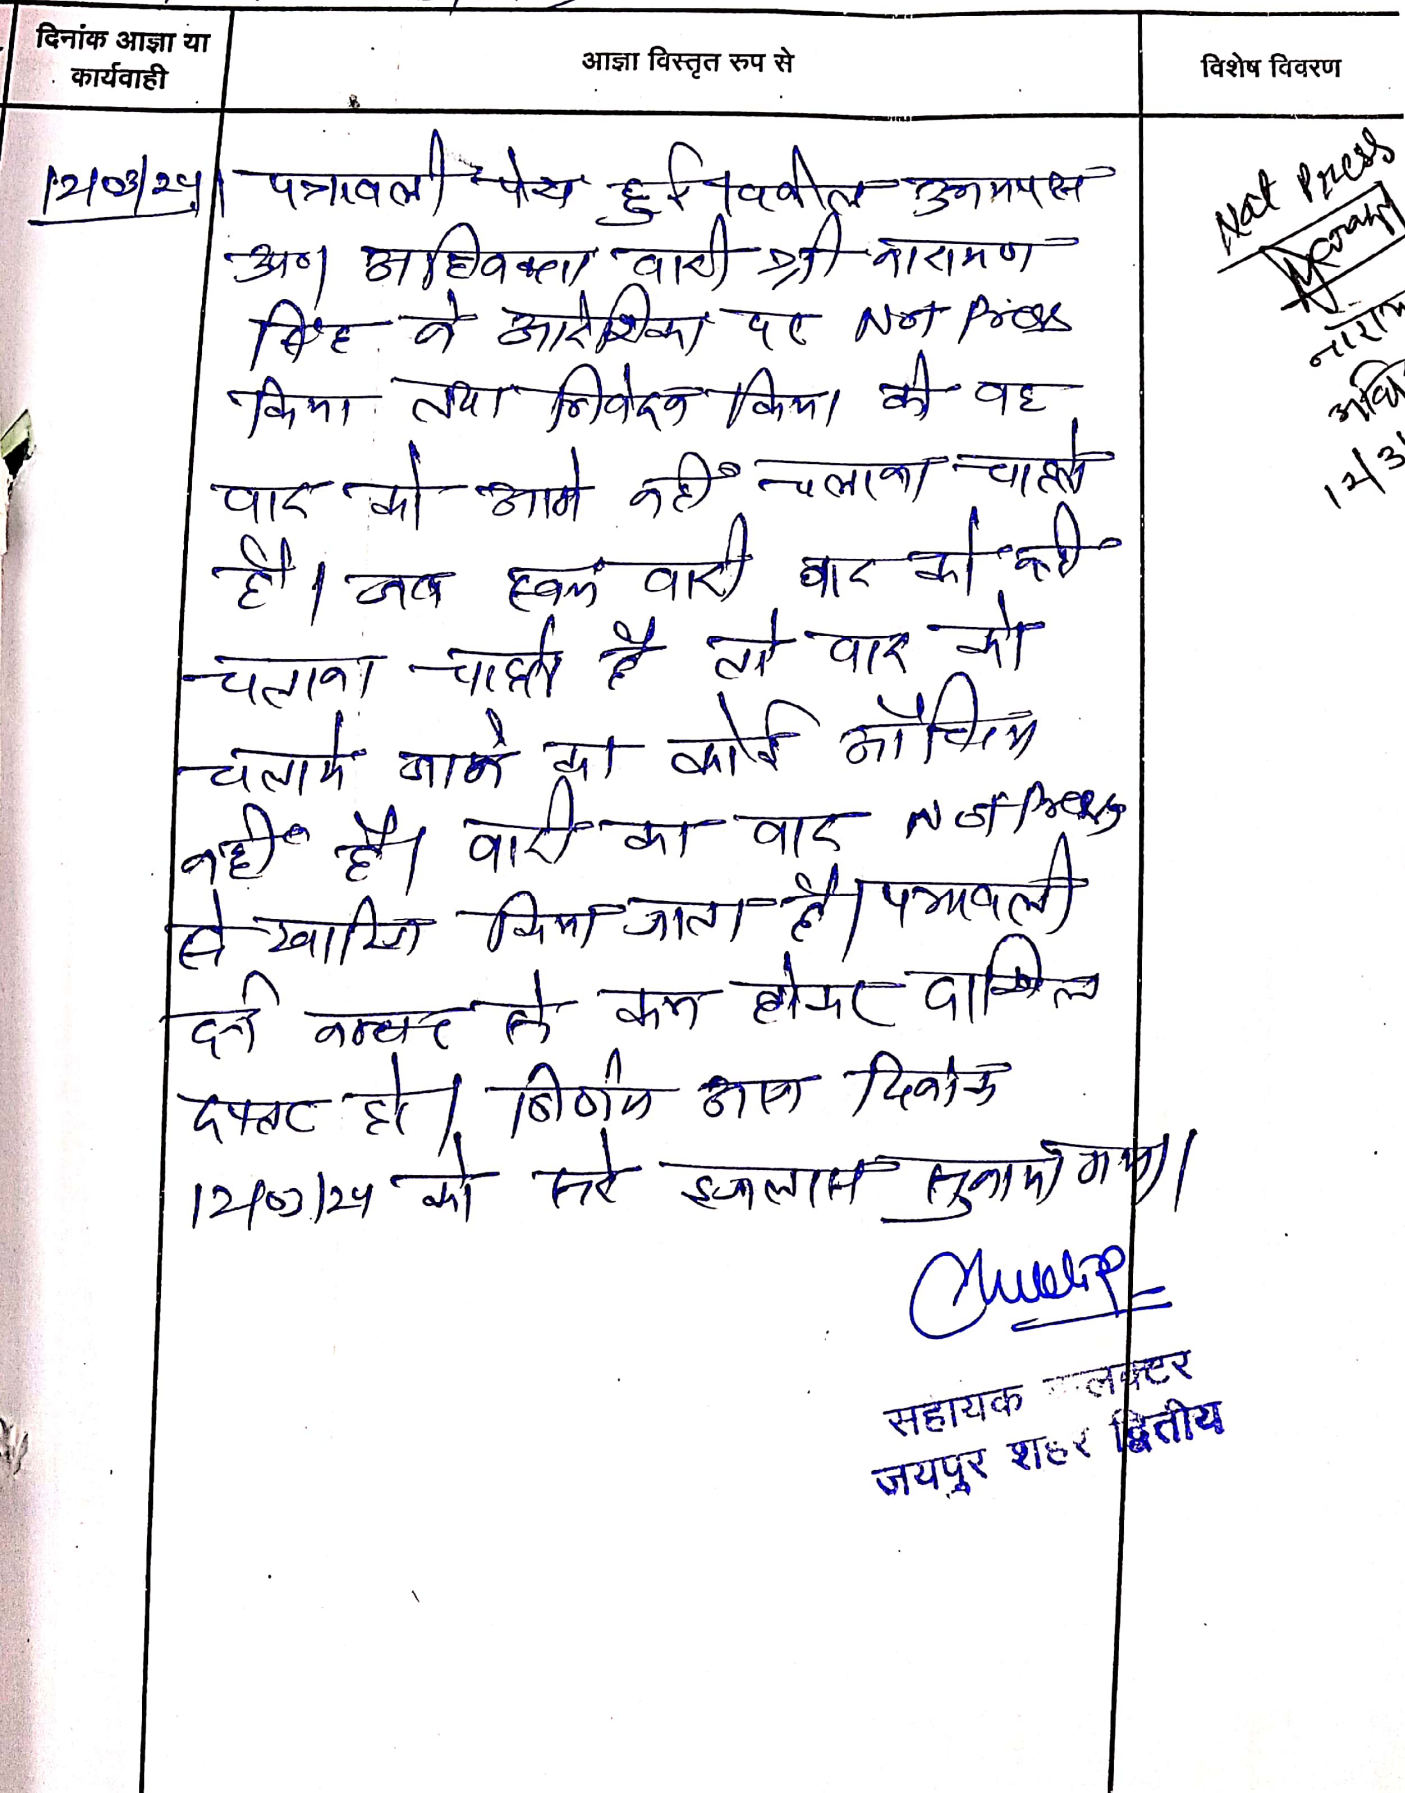 दिनांक आज्ञा या
कार्यवाही
आज्ञा विस्तृत रुप से
विशेष विवरण
12/03/24 पत्रावली पेश हुई। वकील उभयपक्ष
अधिवक्ता वादी श्री नारायण
सिंह ने आदेशिका पर Not Press
किया तथा निवेदन किया की वह
वाद को आगे नहीं चलाना चाहते
है। जब स्वयं वादी वाद को नहीं
चलाना चाहते है तो वाद को
चलाये जाने का कोई औचित्य
नहीं है। वादी का वाद Not Press
से खारिज किया जाता है। पत्रावली
दर्ज नम्बर से कम होकर दाखिल
दफ्तर हो। निर्णय आज दिनांक
12/03/24 को सरे इजलास सुनाया गया।
Not Press
सहायक कलक्टर
जयपुर शहर द्वितीय